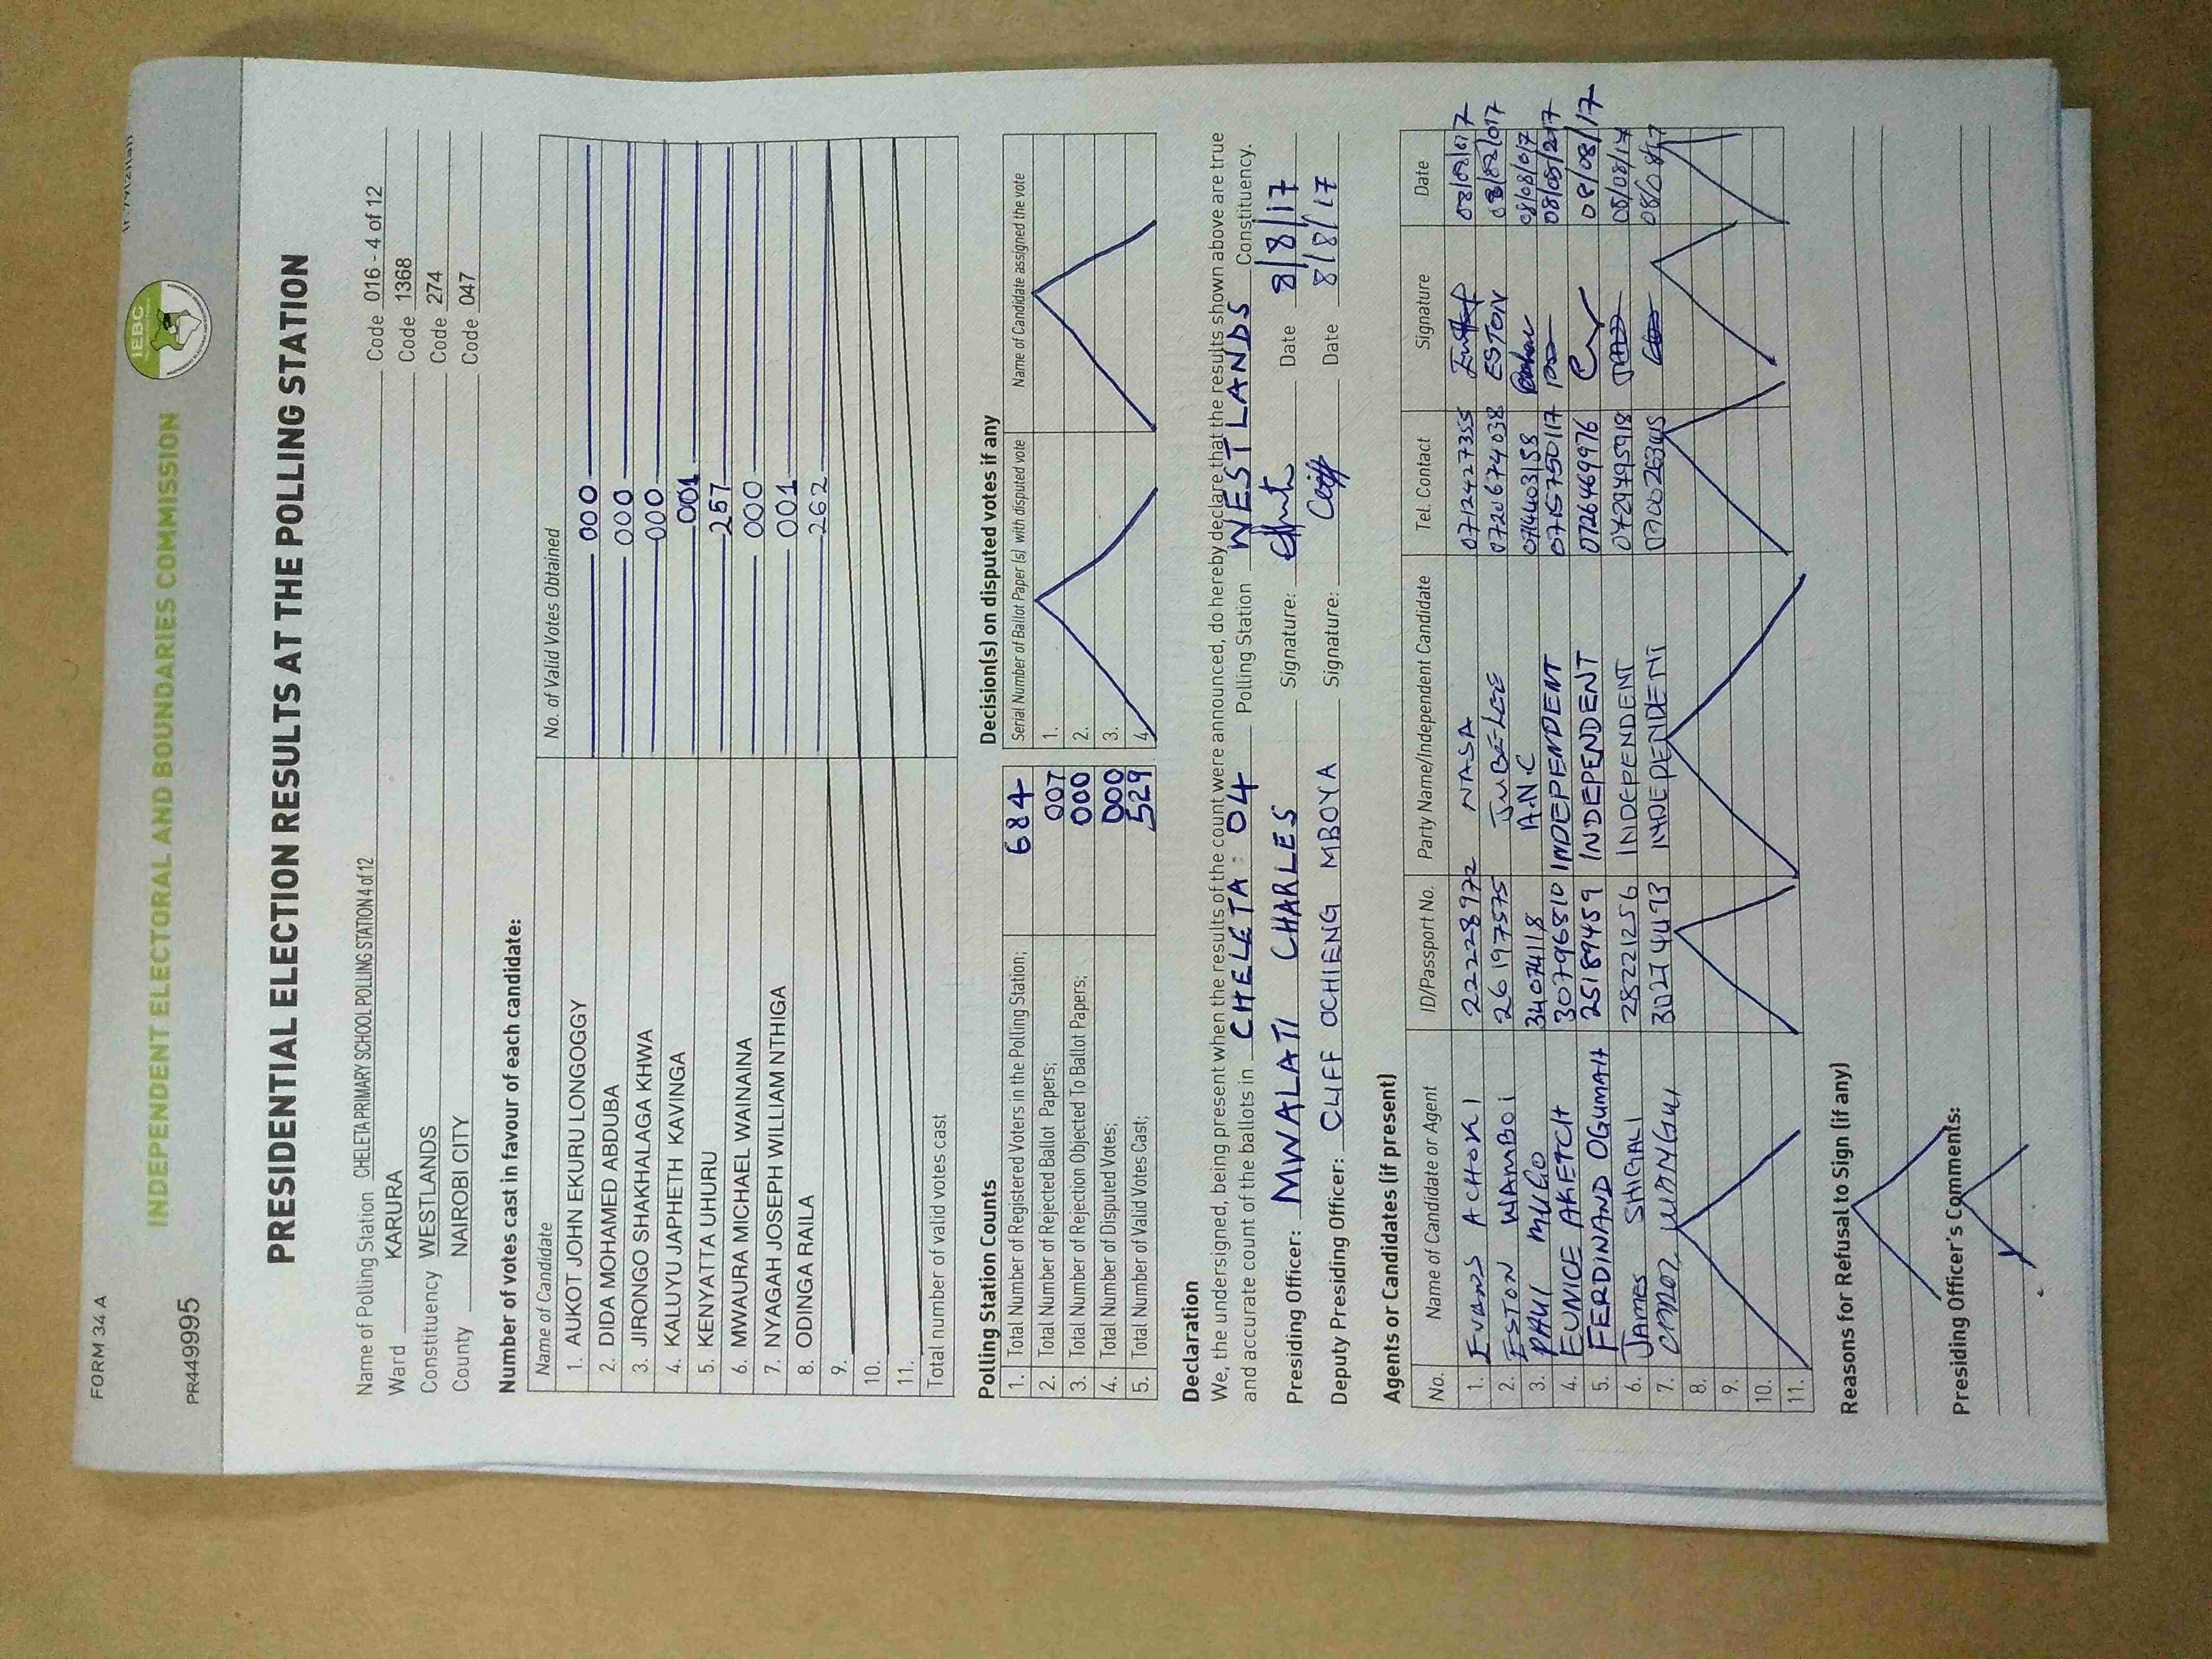 FORM 34 A
INDEPENDENT ELECTORAL AND BOUNDARIES COMMISSION
IEBC
PR449995
PRESIDENTIAL ELECTION RESULTS AT THE POLLING STATION
Name of Polling Station CHELETA PRIMARY SCHOOL POLLING STATION 4 of 12 Code 016 - 4 of 12
Ward KARURA Code 1368
Constituency WESTLANDS Code 274
County NAIROBI CITY Code 047
Number of votes cast in favour of each candidate:
Name of Candidate No. of Valid Votes Obtained
1. AUKOT JOHN EKURU LONGOGGY 000
2. DIDA MOHAMED ABDUBA 000
3. JIRONGO SHAKHALAGA KHWA 000
4. KALUYU JAPHETH KAVINGA 001
5. KENYATTA UHURU 257
6. MWAURA MICHAEL WAINAINA 000
7. NYAGAH JOSEPH WILLIAM NTHIGA 001
8. ODINGA RAILA 262
9.
10.
11.
Total number of valid votes cast
Polling Station Counts
1. Total Number of Registered Voters in the Polling Station; 684
2. Total Number of Rejected Ballot Papers; 007
3. Total Number of Rejection Objected To Ballot Papers; 000
4. Total Number of Disputed Votes; 000
5. Total Number of Valid Votes Cast; 529
Decision(s) on disputed votes if any
Serial Number of Ballot Paper (s) with disputed vote Name of Candidate assigned the vote
1.
2.
3.
4.
Declaration
We, the undersigned, being present when the results of the count were announced, do hereby declare that the results shown above are true
and accurate count of the ballots in CHELETA 04 Polling Station WESTLANDS Constituency.
Presiding Officer: MWALATI CHARLES Signature: Date 8/8/17
Deputy Presiding Officer: CLIFF OCHIENG MBOYA Signature: Cliff Date 8/8/17
Agents or Candidates (if present)
No. Name of Candidate or Agent ID/Passport No. Party Name/Independent Candidate Tel. Contact Signature Date
1. EVANS ACHOKI 22228972 NASA 0712427355
2. ESTON WAMBOI 26197575 JUBELEE 0720674038 ESTON
3. PAUL MUGO 34074118 A.N.C 0714403158 08/08/017
4. EUNICE AKETCH 30796810 INDEPENDENT 0715750117 08/08/2017
5. FERDINAND OGUMAH 25189459 INDEPENDENT 0726469976 08/08/17
6. JAMES SHIGALI 28221256 INDEPENDENT 0729495918 08/08/17
7. INDEPENDENT
8.
9.
10.
11.
Reasons for Refusal to Sign (if any)
Presiding Officer's Comments: